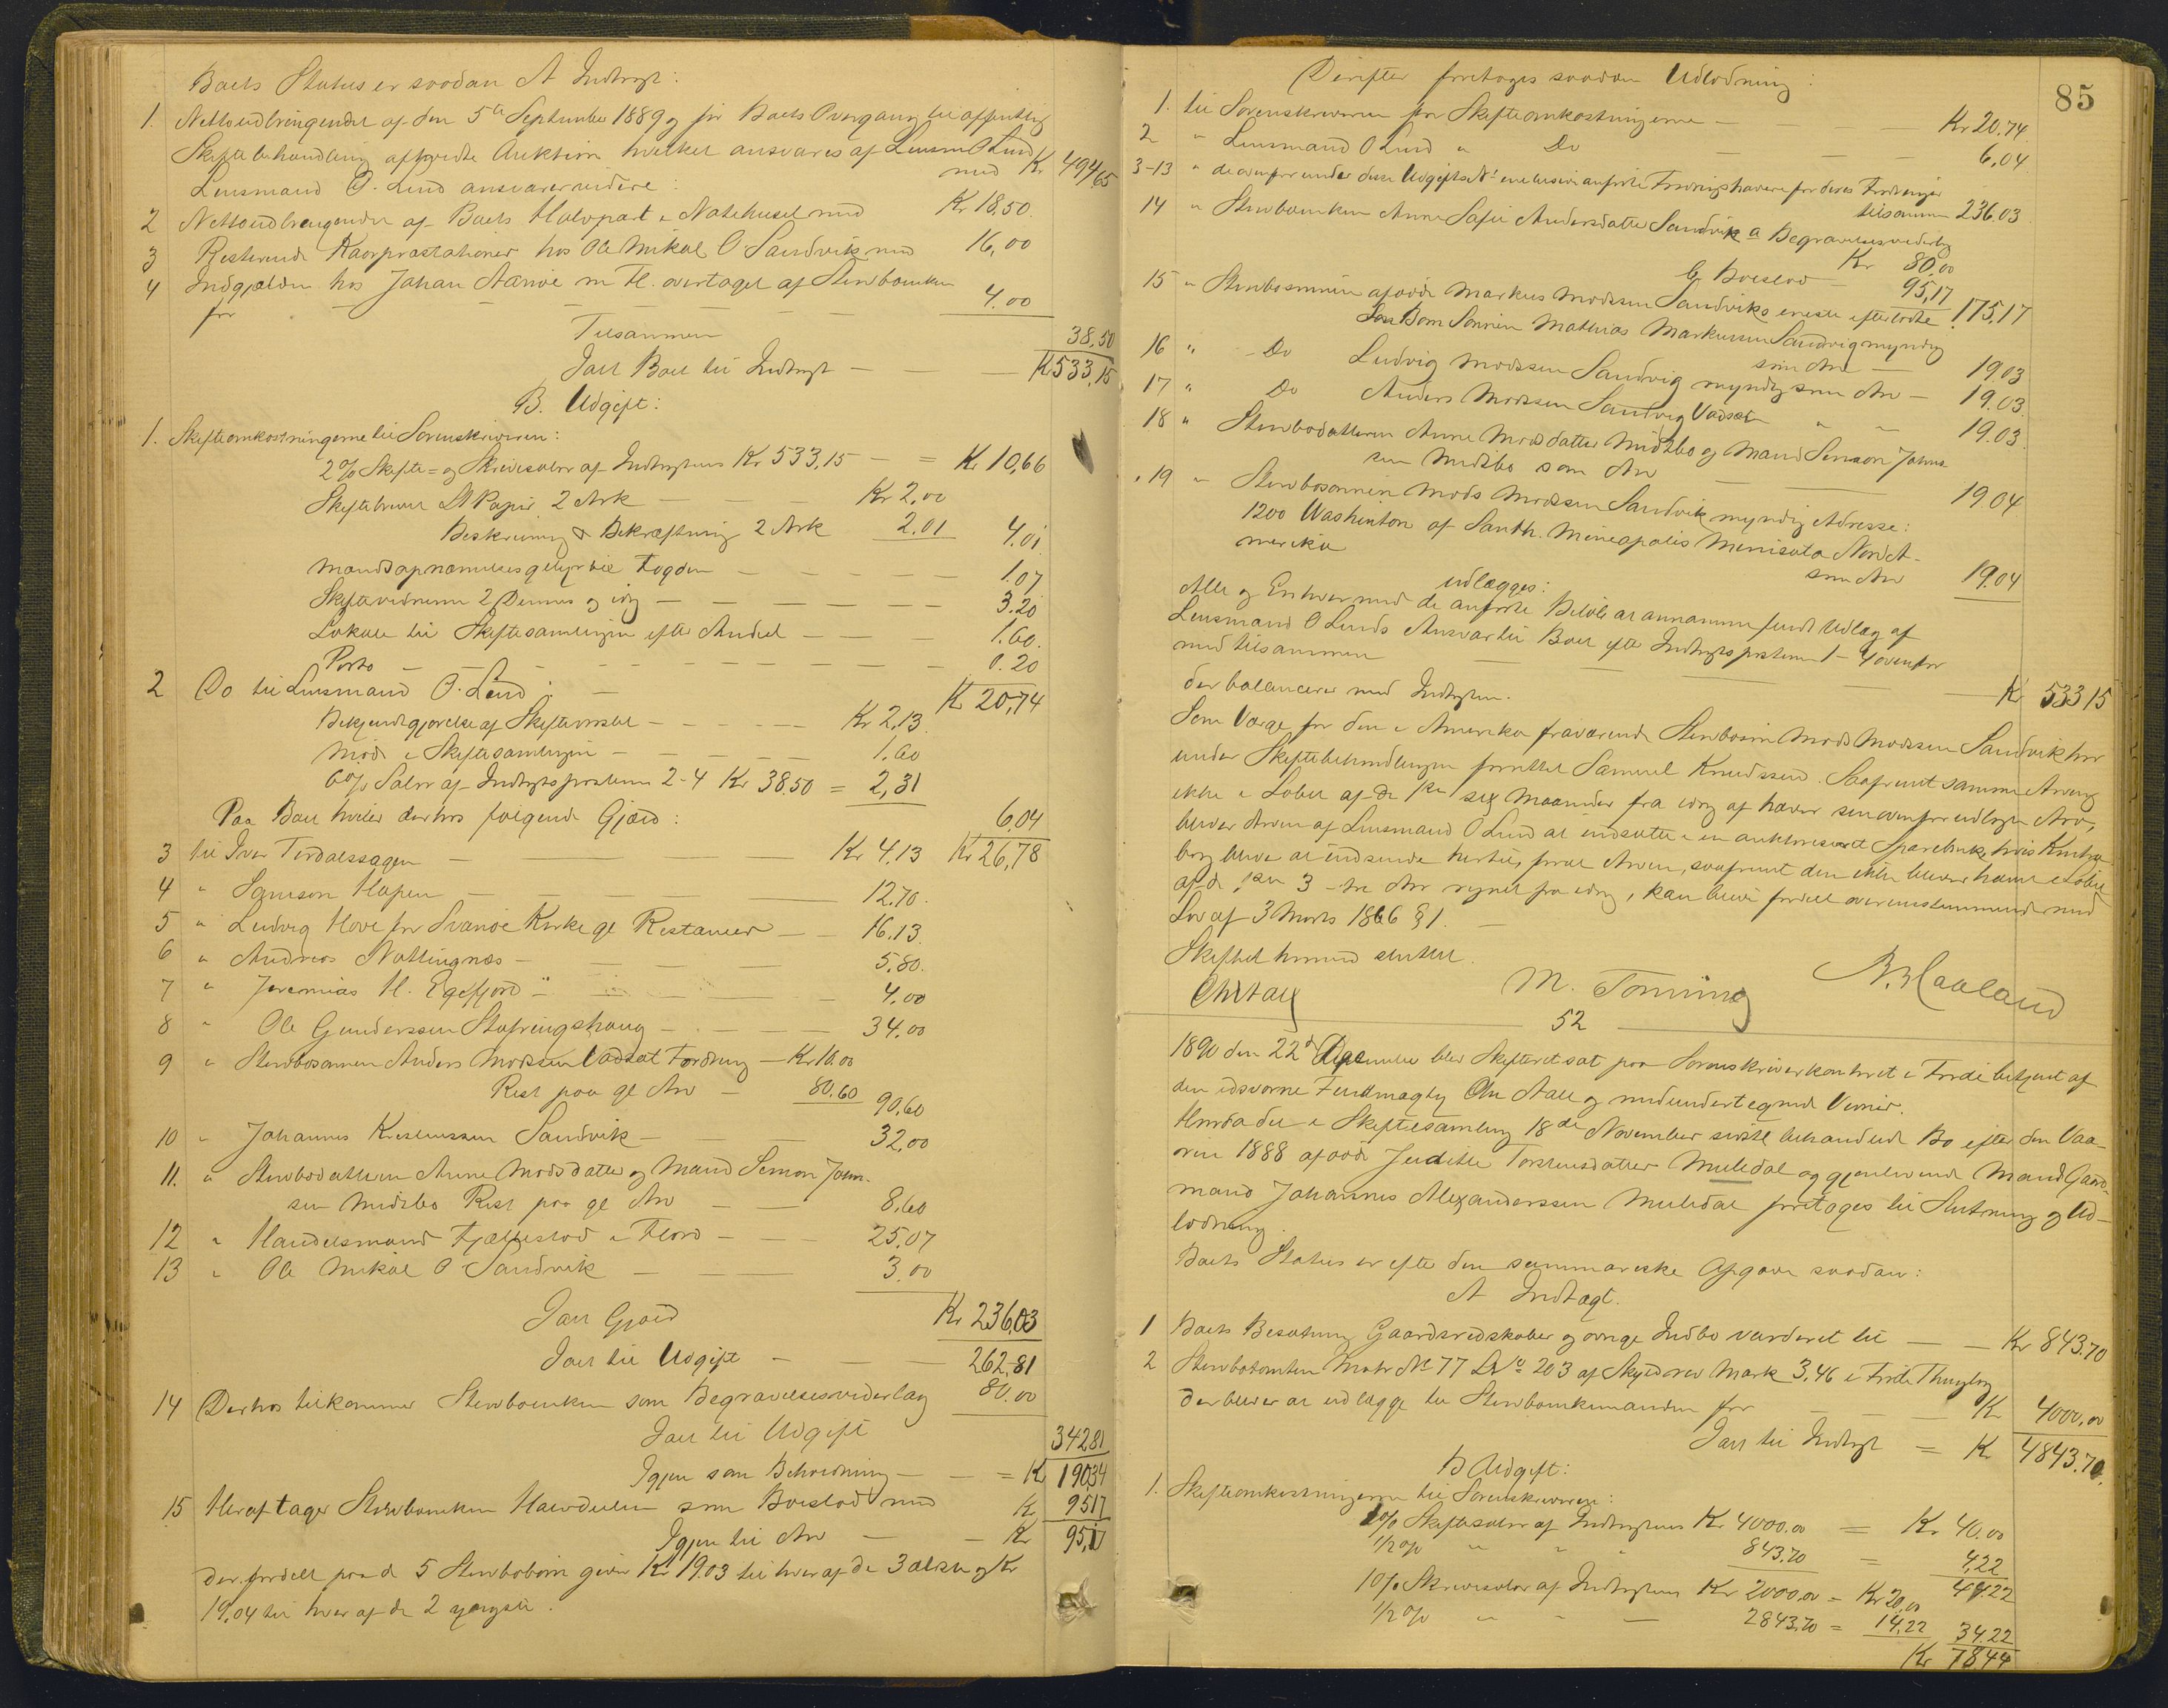 Boets Status er saadan A Indtægt:
1. Nettoudbringendet af den 5te September 1889 og før Boets Overgang til offentlig
Skiftebehandling afholdte Auktion hvilket ansvares af Lensm O Lund
med Kr 494,65
Lensmand O. Lund ansvarer videre:
2 Nettoudbringendet af Boets Halvpart i Nøtehuset med Kr 18,50.
3 Resterende Kaarpræstationer hos Ole Mikal O Sandvik med 16,00
4 Indgjælden hos Johan Aarøe m Fl. overtaget af Stervboenken
for — — — — 4.00
Tilsammen 38,50
Ialt Boet til Indtægt — — — Kr 533,15
B. Udgift:
1. Skifteomkostningerne til Sorenskriveren:
2% Skifte= og Skriversalær af Indtægtens Kr 533,15 — = Kr 10,66
Skiftebrevet St Papir 2 Ark — — — Kr 2,00
Beskrivning & Bekræftning 2 Ark 2.01 4.01
Mandsopnævnelsesgebyr til Fogden — — — — 1.07
Skiftevidnerne 2 Dennes og idag — — — — 3.20
Lokale til Skiftesamlingen efter Andel — — 1.60.
Porto — — — — — — 0.20
Kr 20,74
2 Do til Lensmand O. Lund: —
Bekjendtgjørelse af Skifteværket — — — Kr 2,13
Møde i Skiftesamlingen — — — 1.60
6% Salær af Indtægtsposterne 2-4 Kr 38.50 = 2,31
6,04
Paa Boet hviler derhos følgende Gjæld: Kr 26,78
3 til Iver Tordalssagen — — — Kr 4.13
4 " Samson Hopen — — — 12.70.
5 " Ludvig Hove for Svanøe Kirke gl Restancer — — 16.13
6 " Andreas Nøttingnes — — — 5.80.
7 " Jeremias H. Egefjord — — — 4.00
8 " Ole Gunderssen Stafringshaug — — — 34.00
9 " Stervbosønnen Anders Madssen Vadset Fordring — Kr 10.00
Rest paa gl Arv — 80,60 90,60
10 " Johannes Kristenssen Sandvik — 32,00
11. " Stervbodatteren Anne Madsdatter og Mand Simon Johns-
sen Midtbø Rest paa gl Arv — — 8,60
12 " Handelsmand Fjellestad i Florø — — — 25.07
13 " Ole Mikal O Sandvik — — — 3.00
Ialt Gjæld Kr 236,03
Ialt til Udgift — — — 262,81
14 Derhos tilkommer Stervboenken som Begravelsesvederlag 80.00
Ialt til Udgift 342,81
Igjen som Beholdning — — = Kr 190,34
15 Heraf tager Stervboenken Halvdelen som Boeslod med Kr 95,17
Igjen til Arv — — Kr 95,17
der fordelt paa de 5 Stervbobørn giver Kr 19.03 til hver af de 3 ældste og Kr
19,04 til hver af de 2 yngste.
85
Derefter foretoges saadan Udlodning:
1. til Sorenskriveren for Skifteomkostningerne — — — Kr 20,74
2 " Lensmand O Lund " Do — — — 6,04
3-13 " de ovenfor under disse Udgifts No enclusive anførte Fordringshavere for deres Fordringer
tilsammen 236.03
14 " Stervboenken Anne Sofie Andersdatter Sandvik a Begravelsesvederlag
Kr 80,00
b Boeslod — 95,17 175,17
15 " Stervbosønnen afdøde Markus Madssen Sandviks eneste efterladte
Barn Sønnen Mathias Markussen Sandvig myndig
som Arv — 19.03
16 " — Do Ludvig Madssen Sandvig myndig som Arv — 19.03
17 " Do Anders Madssen Sandvig Vadset " " 19.03
18 " Stervbodatteren Anne Madsdatter Midtbø og Mand Simon Johns-
sen Midtbø som Arv — — 19 04
19 " Stervbosønnen Mads Madssen Sandvik myndig Adresse:
1200 Washinton af South. Mineapolis Minisota Nord A-
merika som Arv 19.04
udlægges:
Alle og Enhver med de anførte Beløb at annamme sendt Udlæg af
Lensmand O Lunds Ansvar til Boet efter Indtægtsposterne 1-4 ovenfor
med tilsammen — — — Kr 533 15
der balancerer med Indtægten.
Som Værge for den i Amerika fraværende Stervbosøn Mads Madssen Sandvik har
under Skiftebehandlingen forrettet Samuel Knudssen. Saafremt samme Arving
ikke i Løbet af de første sex Maaneder fra idag af hæver sin ovenfor udlagte Arv,
bliver Arven af Lensmand O Lund at indsætte i en authoriseret Sparebank, hvis Kontra-
bog bliver at indsende hertil, forat Arven, saafremt den ikke bliver hævet i Løbet
af de første 3 - tre Aar regnet fra idag, kan blive fordelt overensstemmende med
Lov af 3 Marts 1866 § 1. —
Skiftet hermed sluttet.
Chr Aall M. Tonning N. Haaland
52
1890 den 22de December blev Skifteret sat paa Sorenskriverkontoret i Førde betjent af
den edsvorne Fuldmægtig Chr Aall og medundertegnede Vidner.
Hvorda det i Skiftesamling 18de November sidste behandlede Bo efter den Vaa-
ren 1888 afdøde Judithe Torstensdatter Muledal og gjenlevende Mand Gaard-
mand Johannes Alexanderssen Muledal foretoges til Slutning og Ud-
lodning.
Boets Status er efter den summariske Opgave saadan:
A Indtægt.
1 Boets Besætning Gaardsredskaber og øvrige Indbo vurderet til — — Kr 843.70
2 Stervbotomten Matr No 77 LNo 203 af Skyld ny Mark 3,46 i Førde Thinglag
der bliver at udlægge til Stervboenkemanden for — — — Kr 4000,00
Ialt til Indtægt = Kr 4843.70
B Udgift:
1. Skifteomkostningerne til Sorenskriveren:
1% Skiftesalær af Indtægtens Kr 4000.00 = Kr 40.00
1/2% " " " 843.70 = 4,22
44.22
1% Skriversalær af Indtægtens Kr 2000.00 = Kr 20,00
1/2% " " — 2843,70 = 14,22 34.22
Kr 78 44